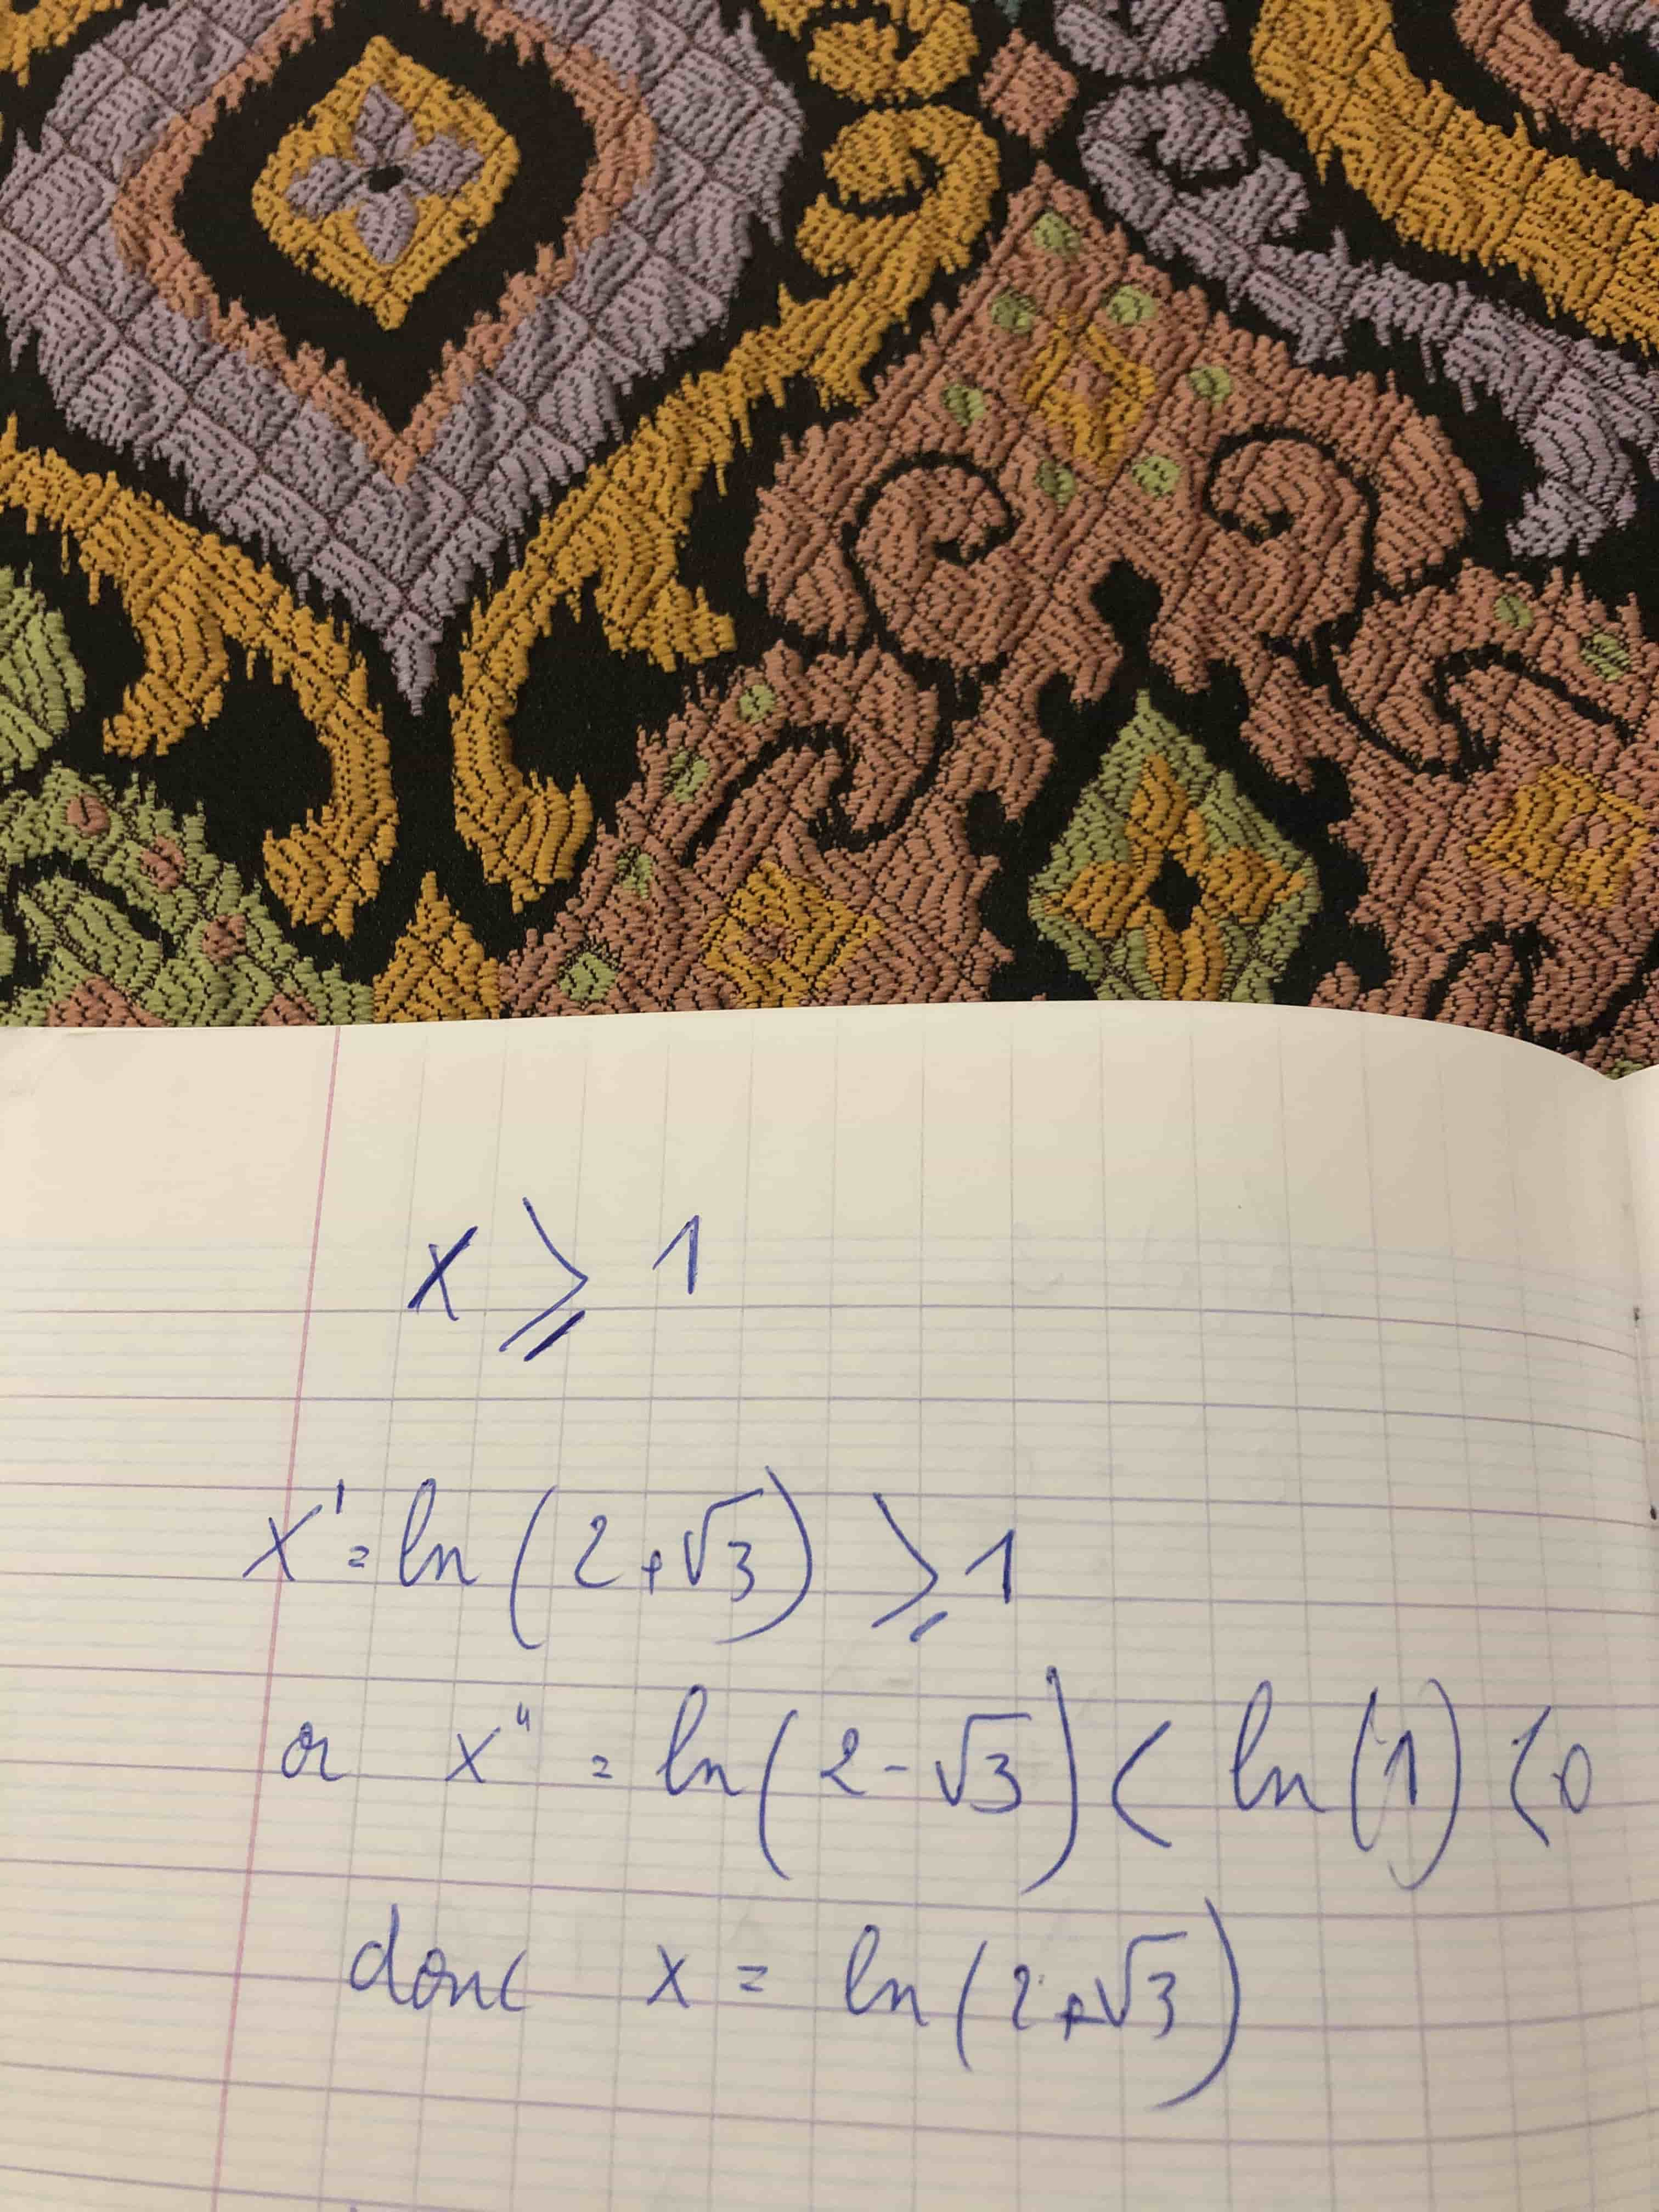 x ⩾ 1
x' = ln(2+√3) ⩾ 1
or x" = ln(2-√3) < ln(1) < 0
donc x = ln(2+√3)